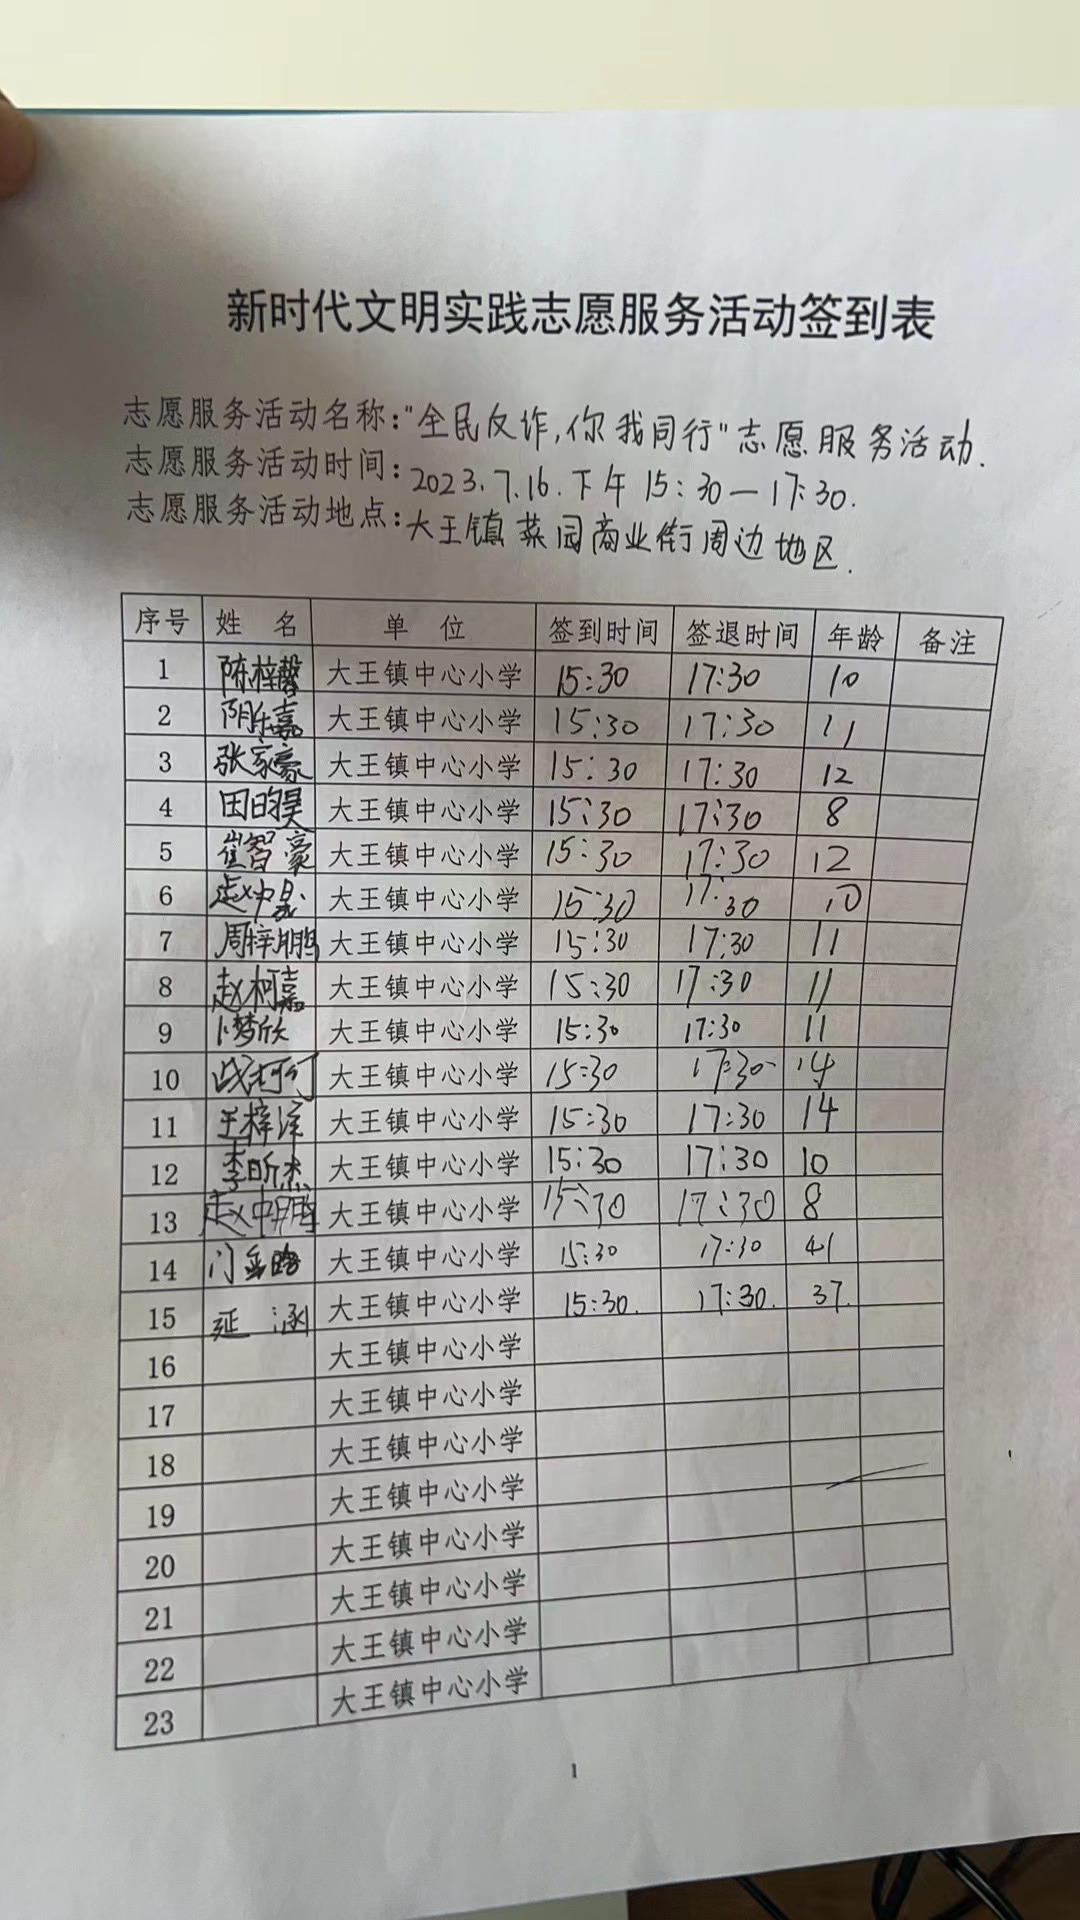 新时代文明实践志愿服务活动签到表
志愿服务活动名称:"全民反诈,你我同行"志愿服务活动.
志愿服务活动时间:2023.7.16.下午15:30—17:30.
志愿服务活动地点:大王镇菜园商业街周边地区.
序号 姓 名 单 位 签到时间 签退时间 年龄 备注
1 陈梓馨 大王镇中心小学 15:30 17:30 10
2 大王镇中心小学 15:30 17:30 11
3 张家豪 大王镇中心小学 15:30 17:30 12
4 田昀昊 大王镇中心小学 15:30 17:30 8
5 崔智豪 大王镇中心小学 15:30 17:30 12
6 大王镇中心小学 15:30 17:30 10
7 周梓鹏 大王镇中心小学 15:30 17:30 11
8 赵柯嘉 大王镇中心小学 15:30 17:30 11
9 卜梦欣 大王镇中心小学 15:30 17:30 11
10 大王镇中心小学 15:30 17:30 14
11 大王镇中心小学 15:30 17:30 14
12 李昕杰 大王镇中心小学 15:30 17:30 10
13 赵中鹏 大王镇中心小学 15:30 17:30 8
14 大王镇中心小学 15:30 17:30 41
15 延 涵 大王镇中心小学 15:30. 17:30. 37.
16 大王镇中心小学
17 大王镇中心小学
18 大王镇中心小学
19 大王镇中心小学
20 大王镇中心小学
21 大王镇中心小学
22 大王镇中心小学
23 大王镇中心小学
1